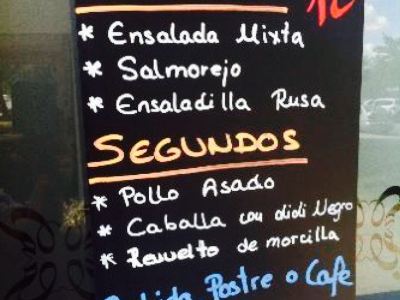 * Ensalada Mixta
* Salmorejo
* Ensaladilla Rusa
SEGUNDOS
* Pollo Asado
* Caballa con alioli Negro
* Revuelto de morcilla
Bebida Postre o Café